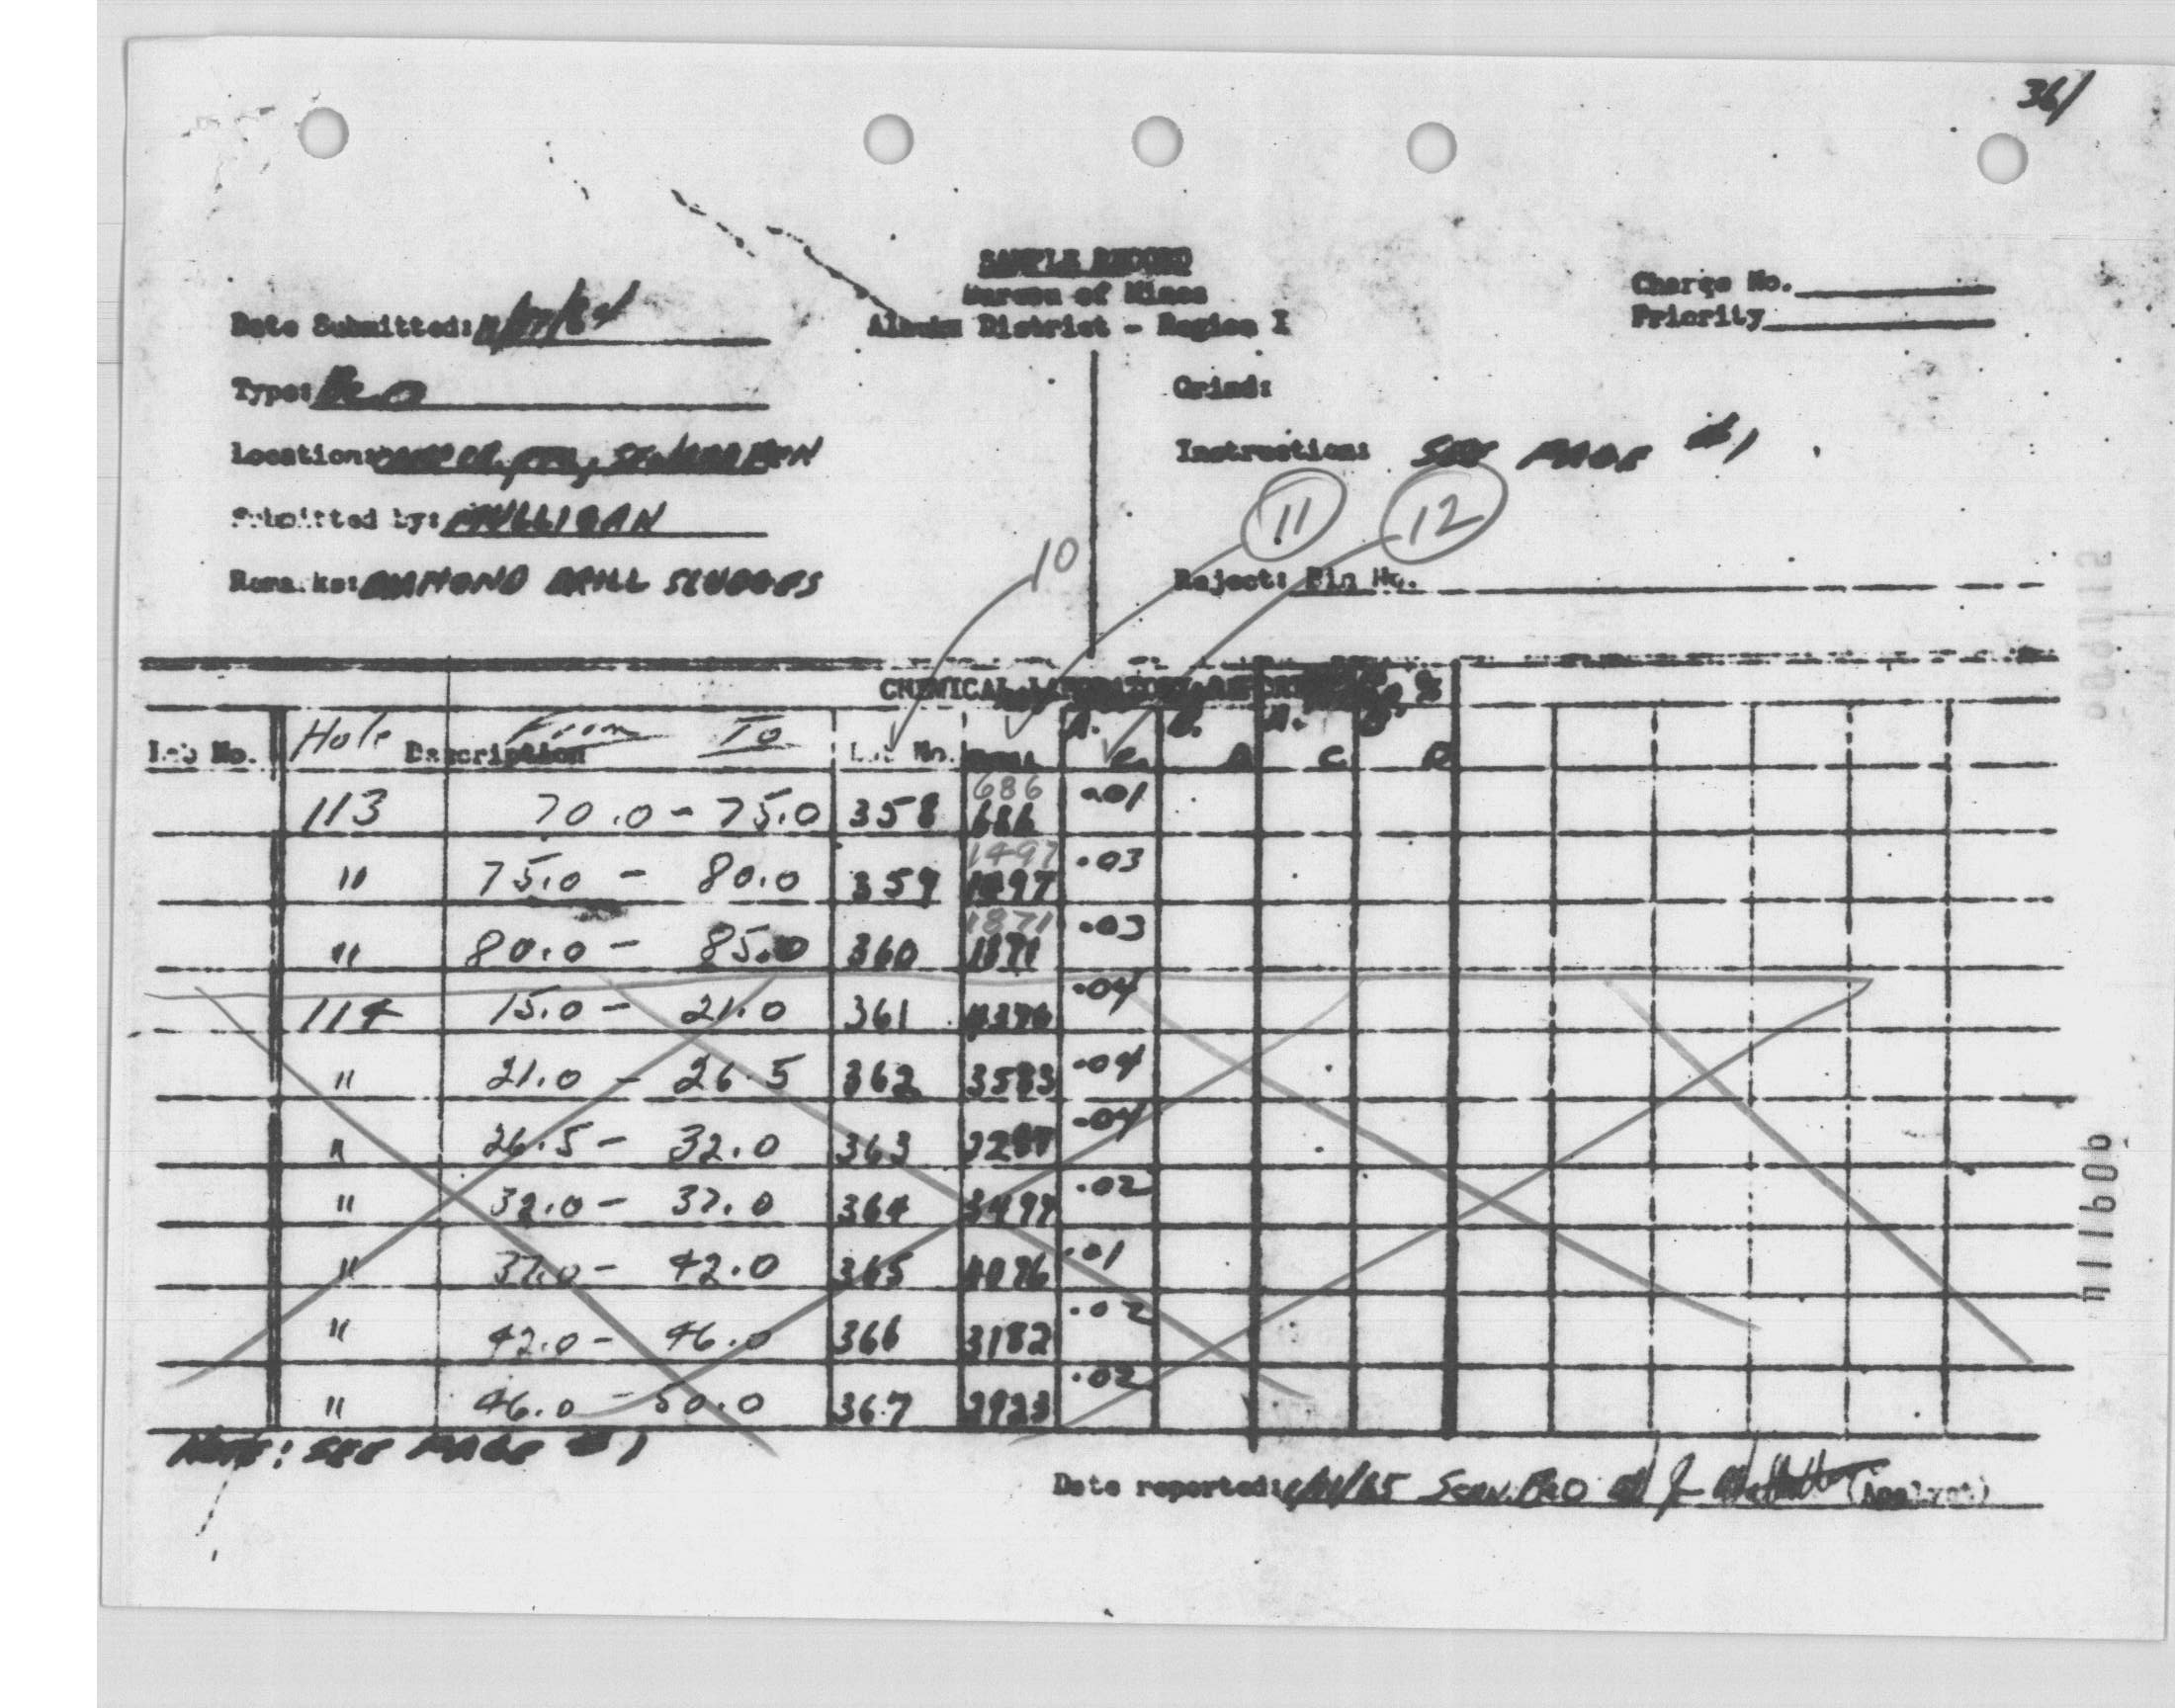 36/
SAMPLE RECORD
Bureau of Mines
Alaska District - Region I
Charge No.
Priority
Date Submitted:
Type: BeO
Location:
Submitted by: MULLIGAN
Remarks: DIAMOND DRILL SLUDGES
Grind:
Instruction: SEE PAGE #1
11 12
10
Reject: Bin No.
CHEMICAL LABORATORY REPORT
Lab No. Hole Description From To Lot No. A. B. A. B.
C D C D
113 70.0 - 75.0 358 686 686 .01
" 75.0 - 80.0 359 1497 1497 .03
" 80.0 - 85.0 360 1871 1871 .03
114 15.0 - 21.0 361 .04
" 21.0 - 26.5 362 3583 .04
" 26.5 - 32.0 363 .04
" 32.0 - 37.0 364 3497 .02
" 37.0 - 42.0 365 .01
" 42.0 - 46.0 366 3182 .02
" 46.0 - 50.0 367 2923 .02
NOTE: SEE PAGE #1
Date reported: (Analyst)